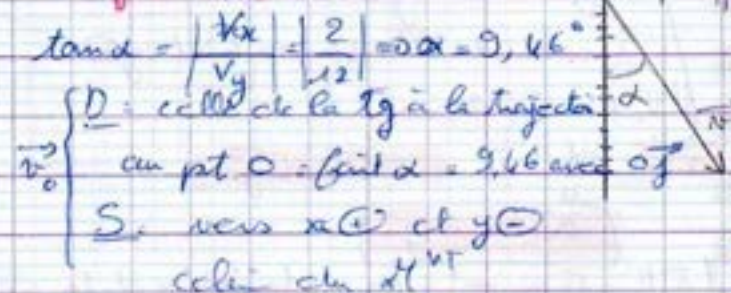 tan α = |Vx / Vy| = |2 / 12| => α = 9,46°
α
D : celle de la tg à la trajectoi
v₀ au pt O = faint α = 9,46 avec Oj
S : vers x ⊕ et y ⊖
celui du M^vt